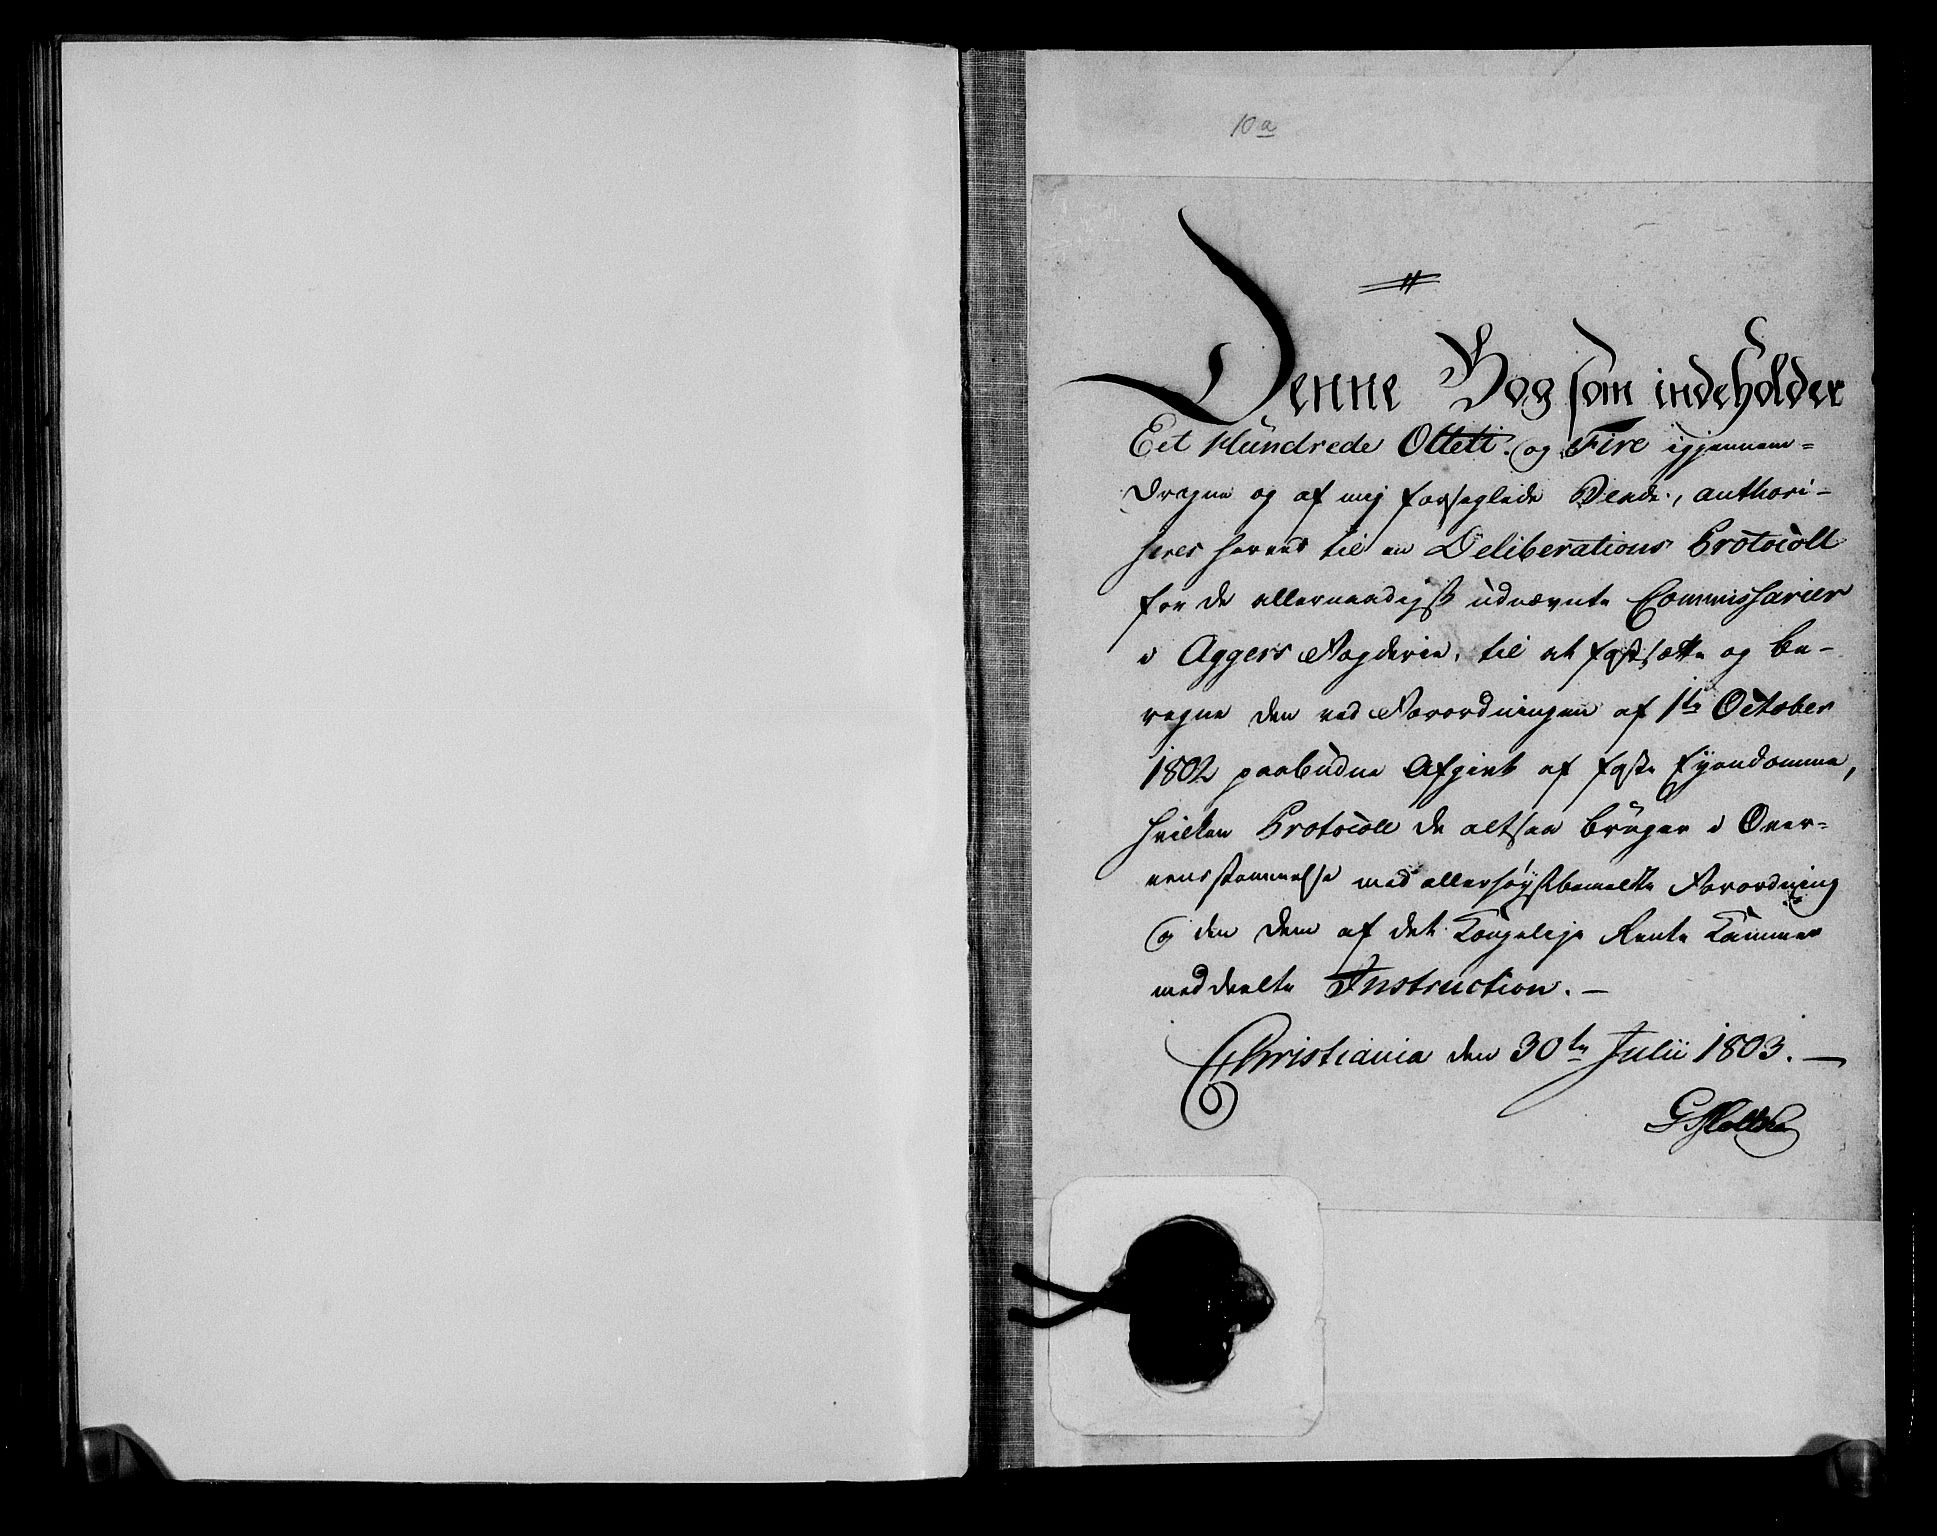 10a
Denne Bog som indeholder
Eet Hundrede Otteti og Fire igjennem=
dragne og af mig forseglede Blade, authori-
seres herved til en Deliberations Protocoll
for de allernaadigst udnævnte Commissarier
i Aggers Fogderie, til at fastsætte og be-
regne den ved Forordningen af 1te October
1802 paabudne Afgivt af faste Ejendomme,
hvilken Protocoll de altsaa bruger i Over=
eensstemmelse med allerhøystbemeldte Forordning
og den dem af det Kongelige Rente Kammer
meddeelte Instruction. —
Christiania den 30te Julii 1803. —
G Moltke